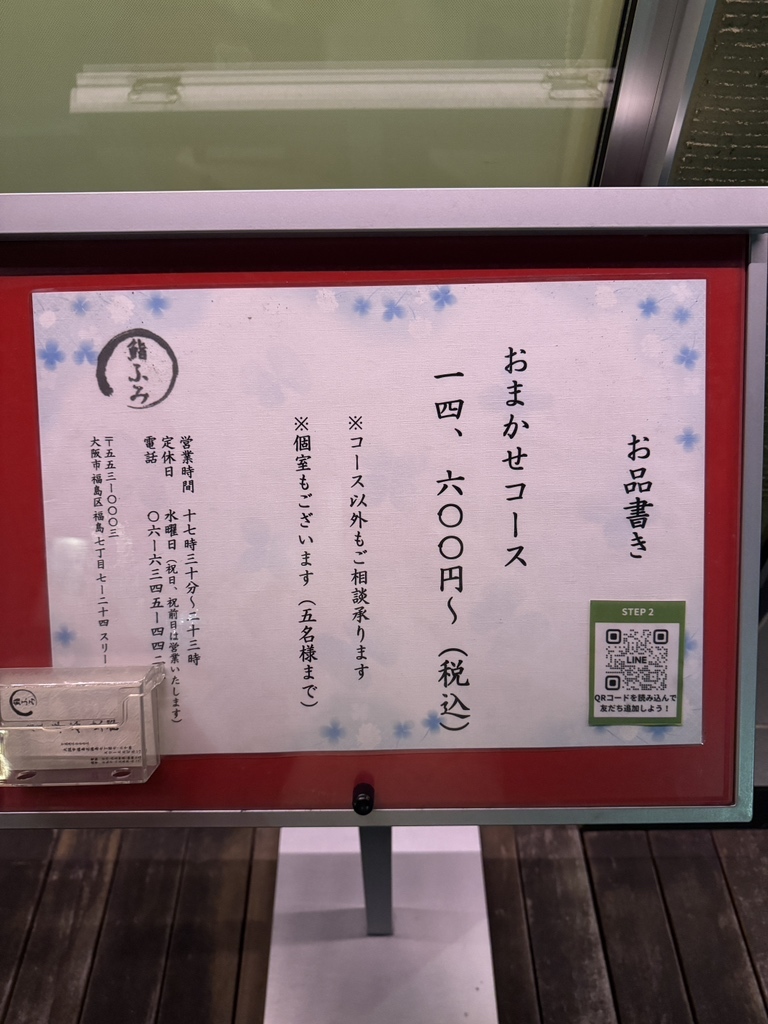 お品書き
おまかせコース
一四、六〇〇円〜（税込）
※コース以外もご相談承ります
※個室もございます（五名様まで）
鮨ふみ
営業時間 十七時三十分〜二十三時
定休日 水曜日（祝日、祝前日は営業いたします）
電話 〇六ー六三四五ー四四二
〒五五三ー〇〇〇三
大阪市福島区福島七丁目七ー二十四 スリー
STEP 2
LINE
QRコードを読み込んで
友だち追加しよう！